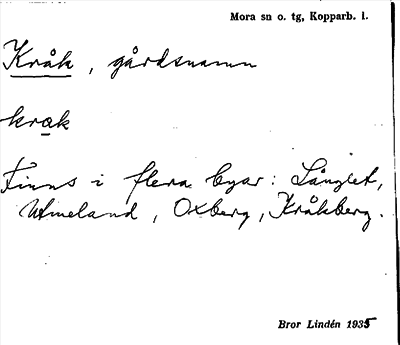 Mora sn o. tg, Kopparb. l.
Kråk, gårdsnamn
kråk
Finns i flera byar: Långlet,
Utmeland, Oxberg, Kråkberg.
Bror Lindén 1935